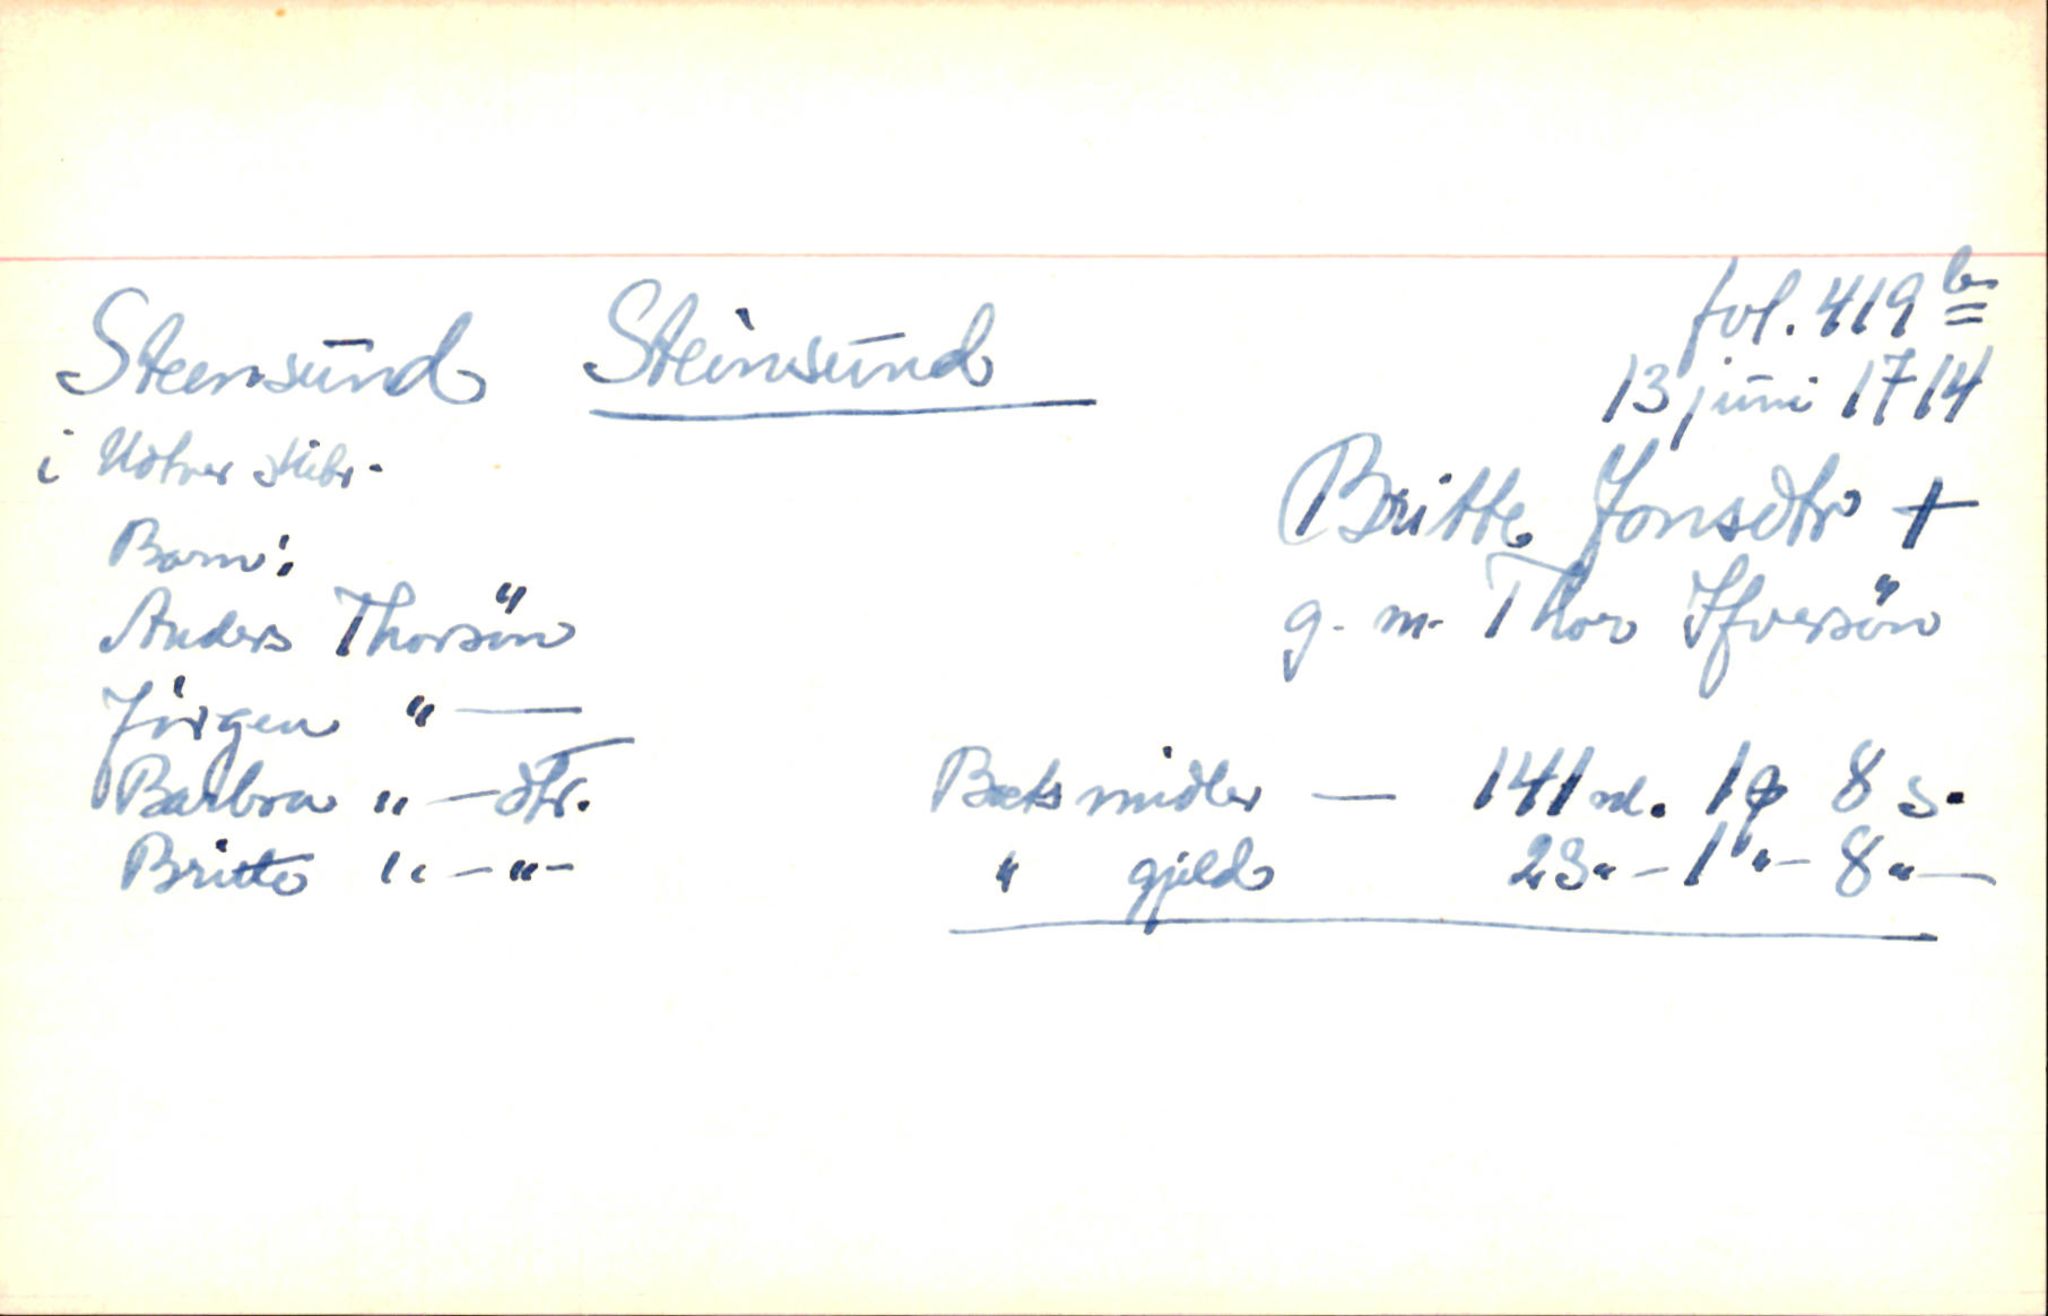 fol. 419 b
Steensund Steinsund
13 juni 1714
i Utvær skibr.
Britte Jonsdtr +
Barn:
g. m. Thor Ifversön
Anders Thorsön
Jörgen " —
Barbra " — dtr.
Boets midler — 141 rd. 1 ꝑ 8 s.
Britte " — " —
" gjeld 23 " — 1 " — 8 " —